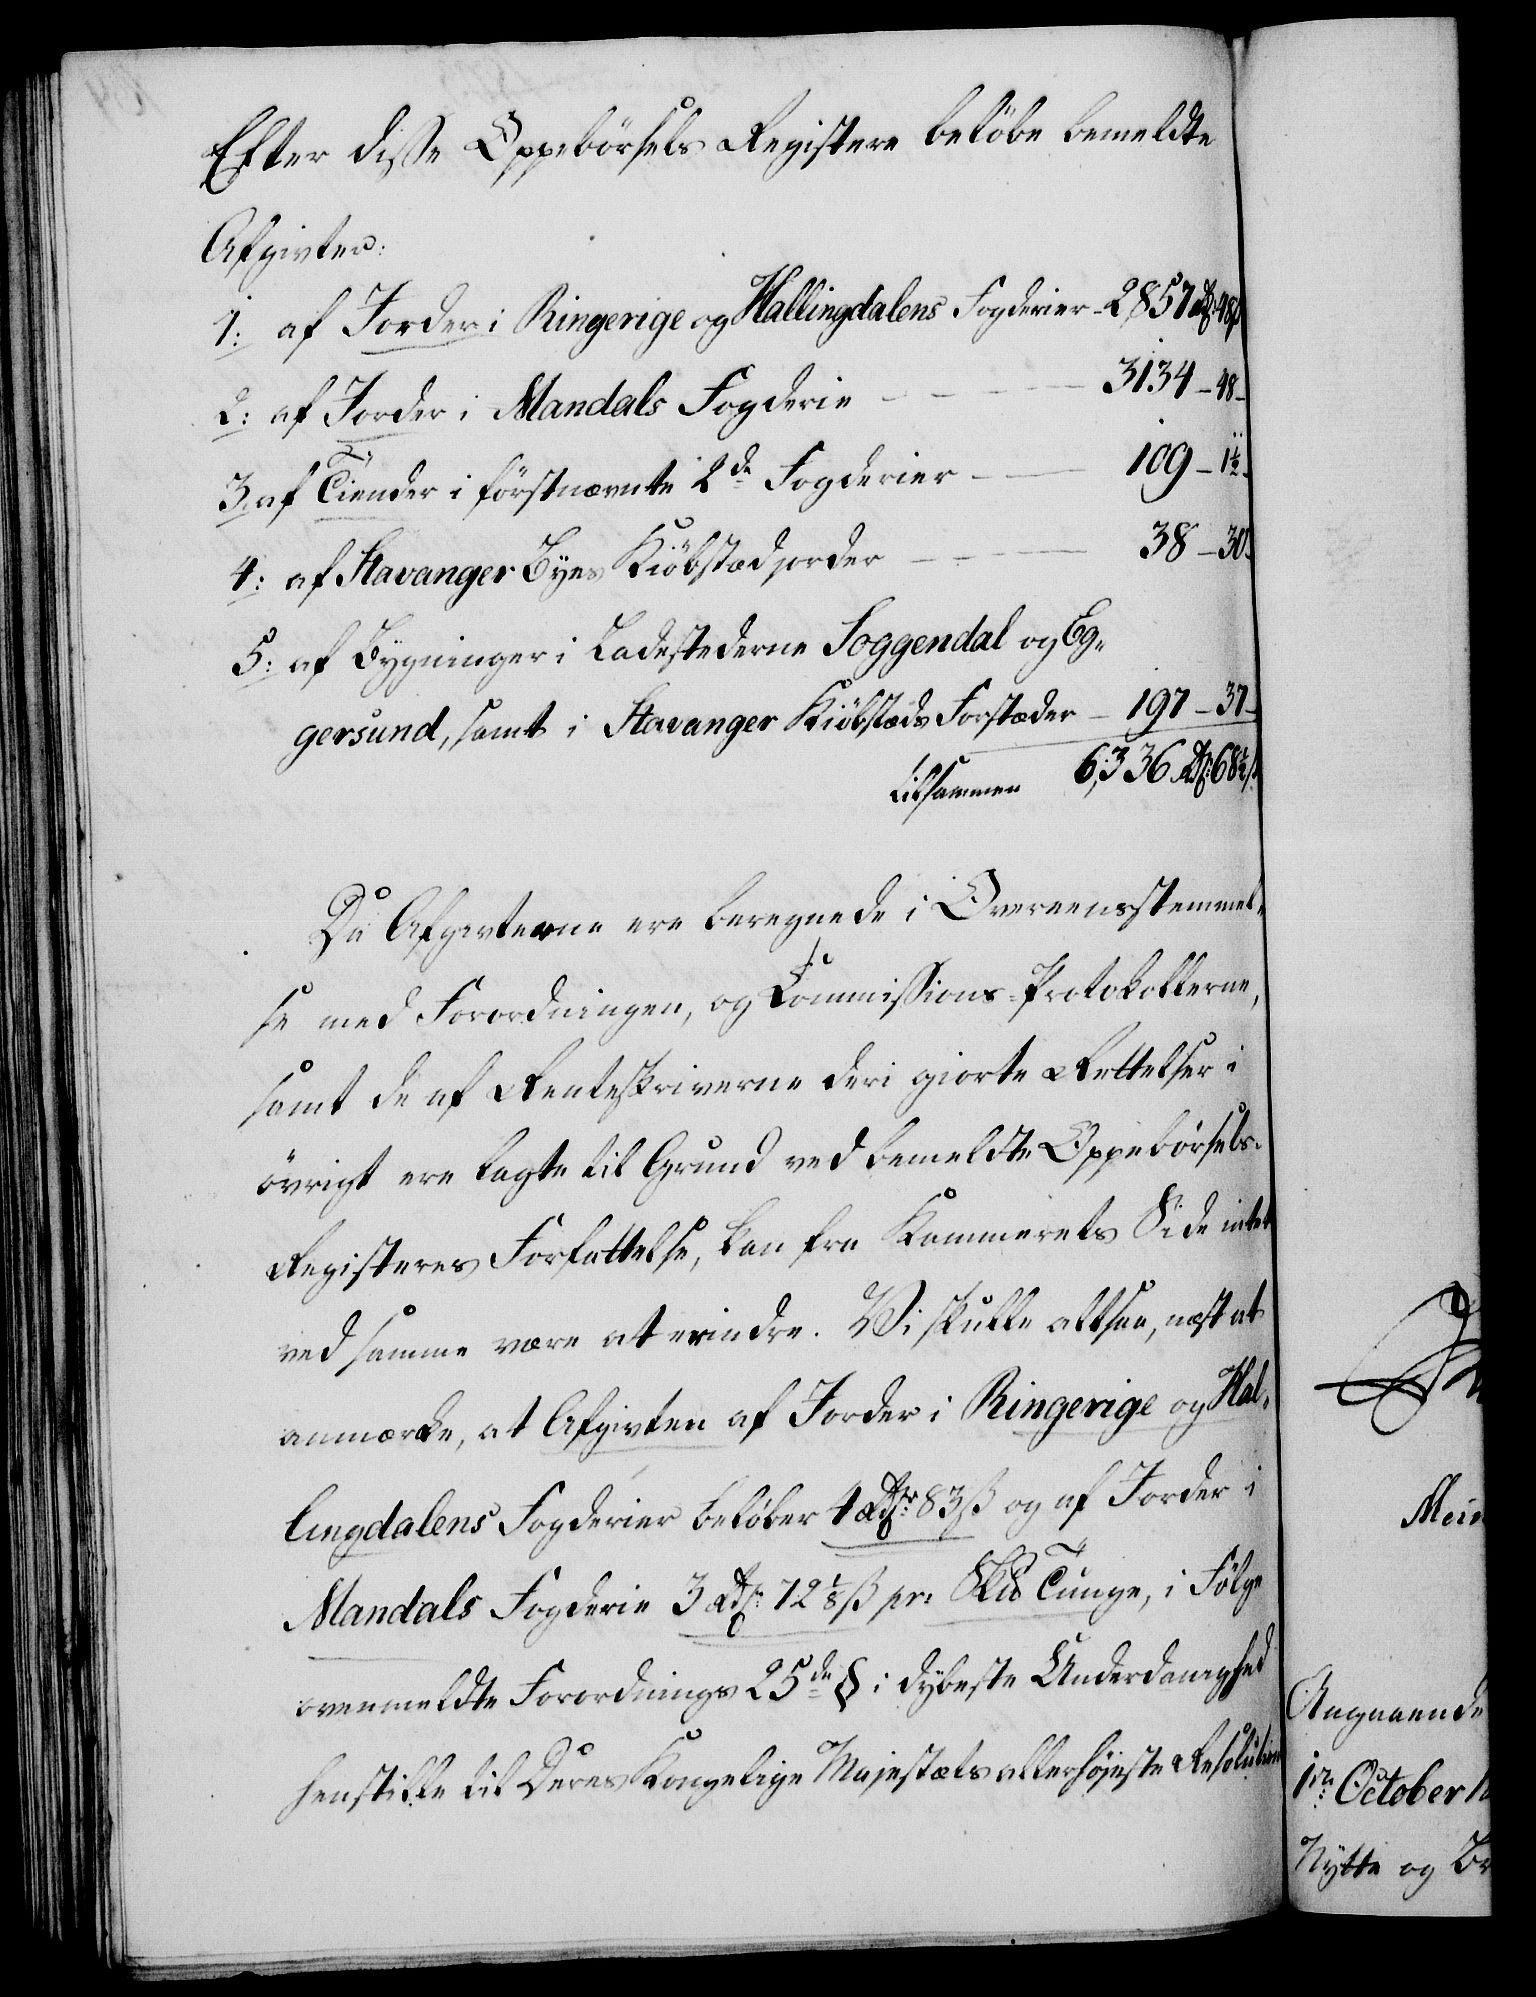 Efter disse Oppebörsels Registere belöbe bemeldte
Afgivter:
1: af Jorder i Ringerige og Hallingdalens Fogderier - 2857 Rdr 48 ß
2: af Jorder i Mandals Fogderie - - - 3134 - 48 -
3. af Tiender i förstnævnte 2de Fogderier - - 109 - 1½ -
4: af Stavanger Byes Kiöbstædjorder - - - 38 - 30 -
5: af Bygninger i Ladestederne Soggendal og Eg-
gersund, samt i Stavanger Kiöbstæds Forstæder - 197 - 37 -
tilsammen 6,336 Rdr 68½ ß
Da Afgivterne ere beregnede i Overeensstemmel-
se med Forordningen, og Commissions-Protokollerne,
samt de af Renteskriverne deri giorte Rettelser i
övrigt ere lagte til Grund ved bemeldte Oppebörsels-
Registeres Forfattelse, kan fra Kammerets Side intet
ved samme være at erindre. Vi skulle altsaa, næst at
anmærke, at Afgivten af Jorder i Ringerige og Hal-
lingdalens Fogderier belöber 4 Rdr 83 ß og af Jorder i
Mandals Fogderie 3 Rdr 72 ⅛ ß pr. Skd Tunge, i Fölge
ovenmeldte Forordnings 25de § i dybeste Underdanighed
henstille til Deres Kongelige Majestæts allerhöjeste Resolution
Angaaende
1ste October
Nytte og